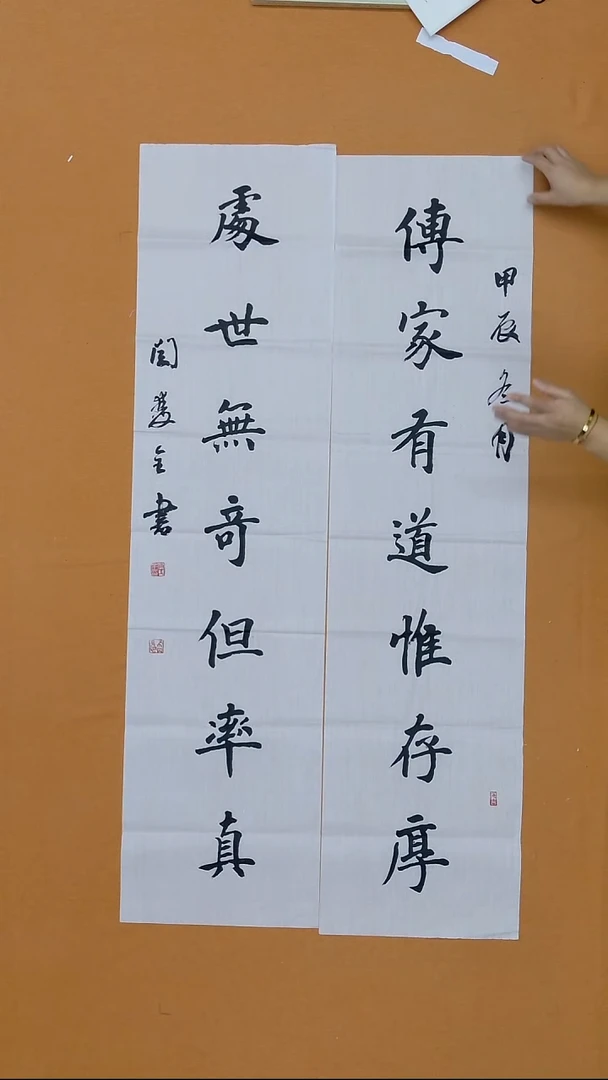 甲辰冬月
傳家有道惟存厚
處世無奇但率真
書